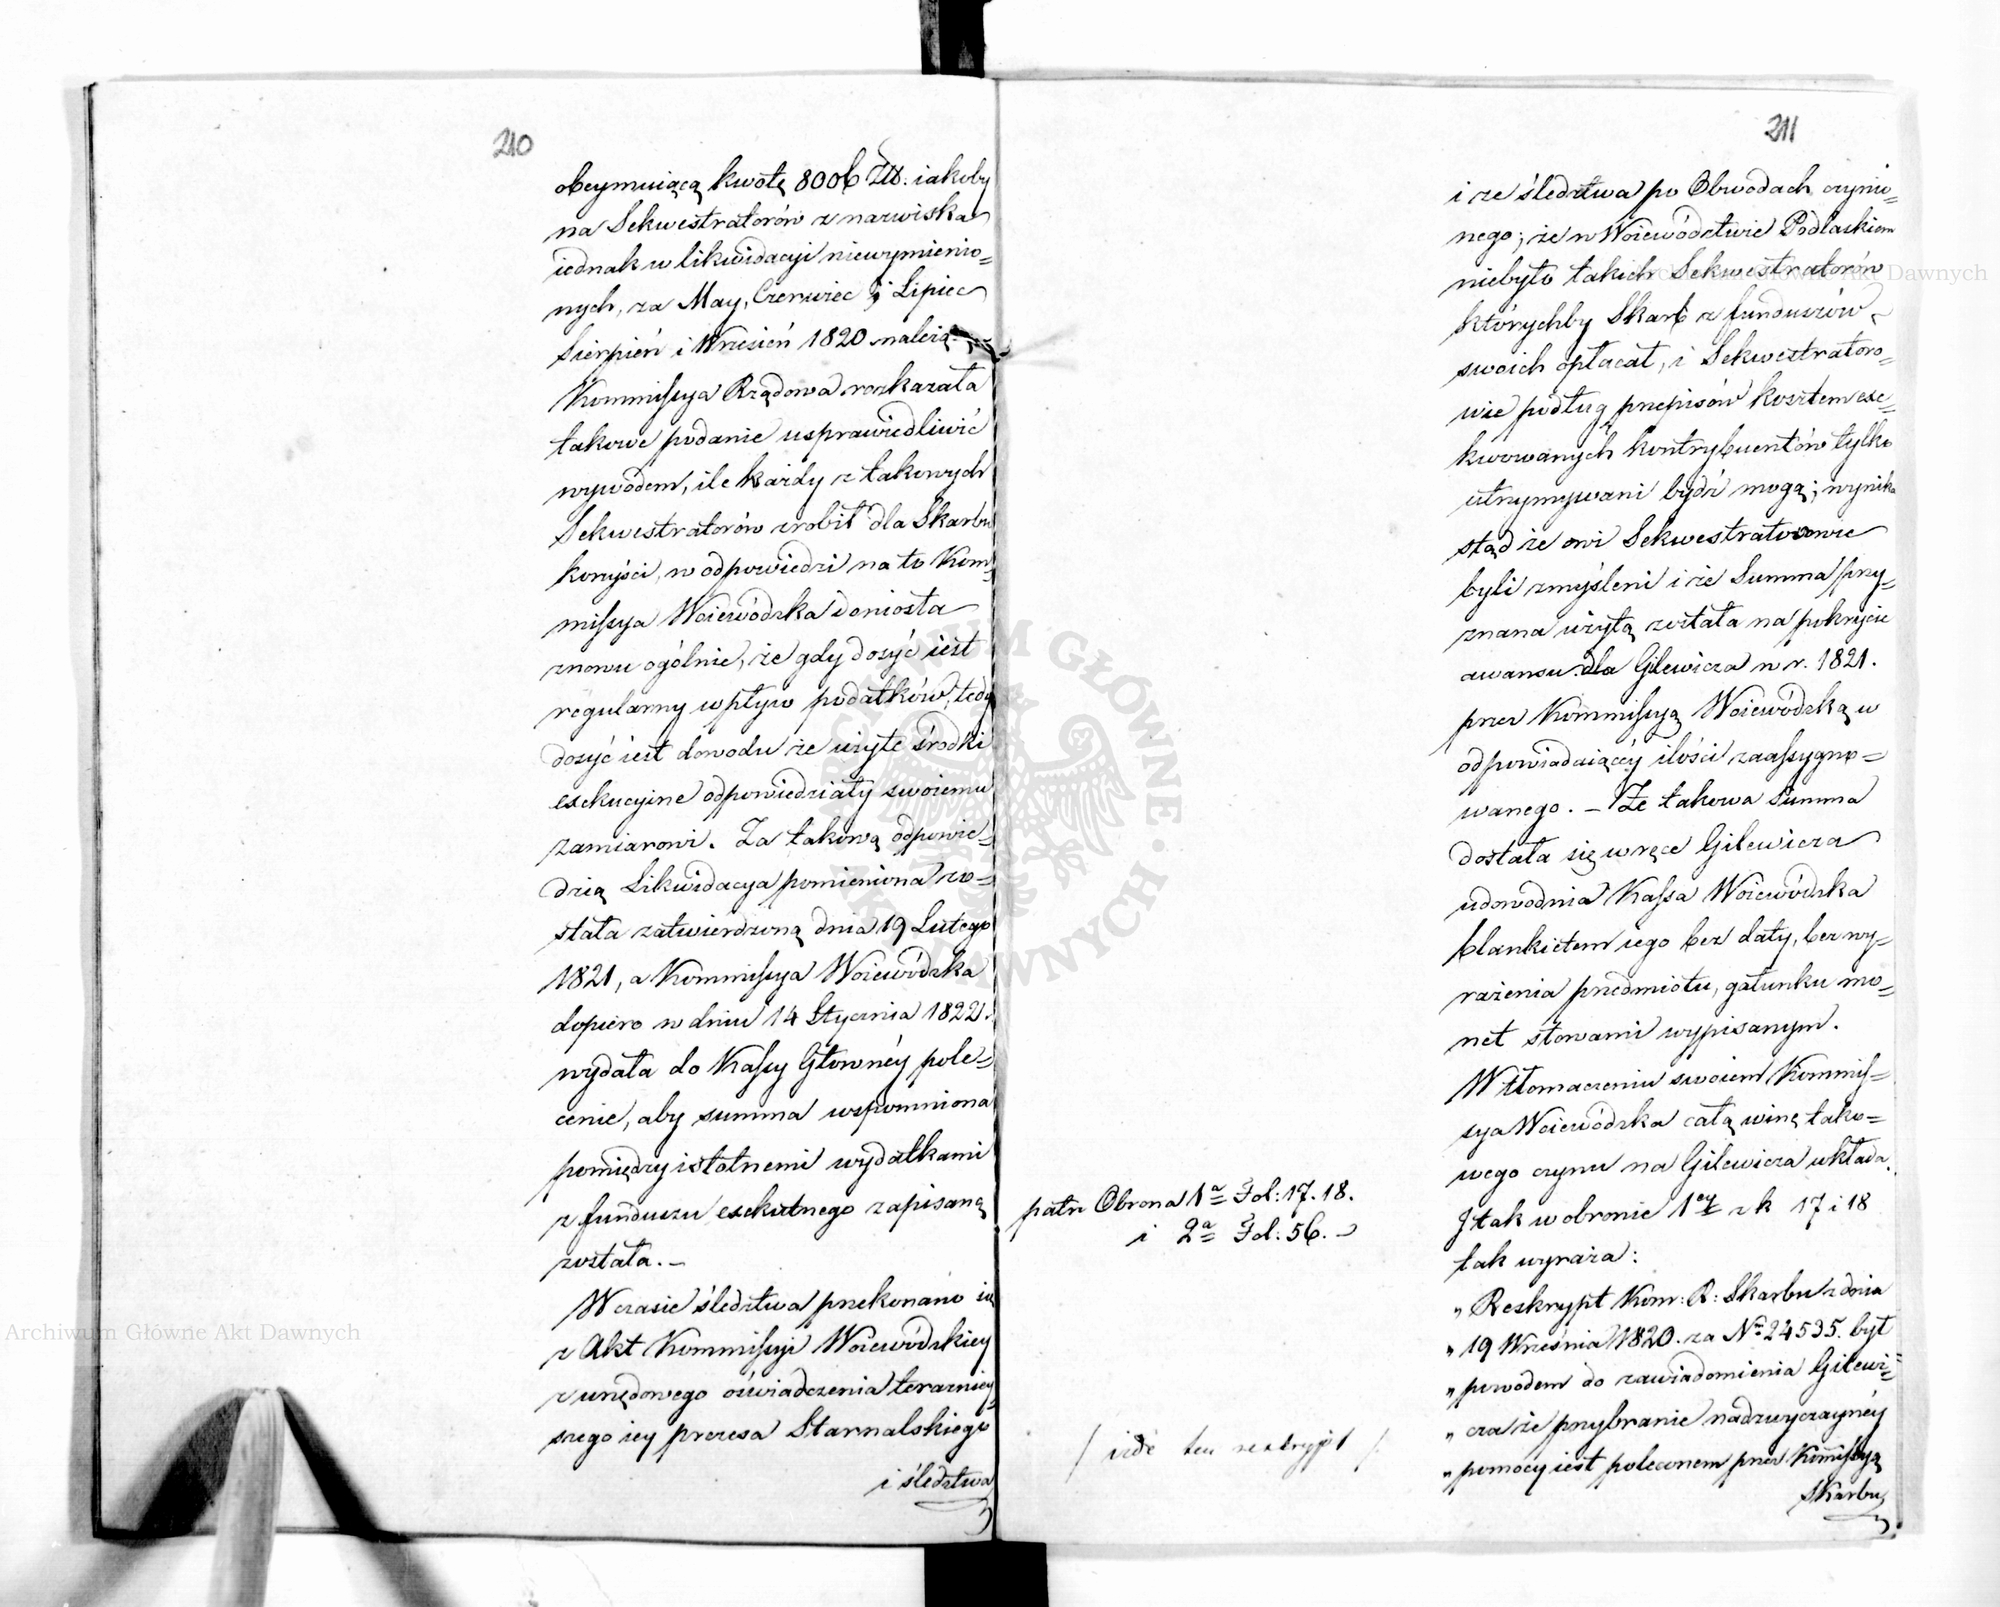 210
obeymuiącą kwotę 8006 Złł. iakoby
na Sekwestratorów z nazwiska
iednak w likwidacyi niewymienio=
nych, za May, Czerwiec i Lipiec
Sierpień i Wrzesień 1820 należą.
Kommissya Rządowa rozkazała
takowe podanie usprawiedliwić
wywodem, ile każdy z takowych
Sekwestratorów zrobił dla Skarbu
korzyści, w odpowiedzi na to Kom=
missya Woiewódzka doniosła
znowu ogólnie, że gdy dosyć iest
regularny wpływ podatków, tedy
dosyć iest dowodu że użyte środki
exekucyine odpowiedziały swoiemu
zamiarowi. Za takową odpowie=
dzią Likwidacya pomieniona zo=
stała zatwierdzoną dnia 19 Lutego
1821, a Kommissya Woiewódzka
dopiero w dniu 14 Stycznia 1822.
wydała do Kassy Głównéy pole=
cenie, aby summa wspomniona
pomiędzy istotnemi wydatkami
z funduszu exekutnego zapisaną
została. —
W czasie śledztwa przekonano się
z Akt Kommissyi Woiewódzkiey
z urzędowego oświadczenia teraźniey=
szego iey prezesa Starnalskiego
i śledztwa
211
i ze śledztwa po Obwodach czynio=
nego; że w Woiewództwie Podlaskiem
niebyło takich Sekwestratorów
którychby Skarb z funduszów
swoich opłacał, i Sekwestratoro=
wie podług przepisów kosztem exe=
kwowanych kontrybuentów tylko
utrzymywani bydź mogą; wynika
stąd że owi Sekwestratorowie
byli zmyśleni i że Summa przy=
znana użytą została na pokrycie
awansu dla Gilewicza w r. 1821.
przez Kommissyą Woiewódzką w
odpowiadaiącéy ilości zaassygno=
wanego. — Że takowa Summa
dostała się w ręce Gilewicza
udowodnia Kassa Woiewódzka
blankietem iego bez daty, bez wy=
rażenia przedmiotu, gatunku mo=
net słowami wypisanym.
W tłomaczeniu swoiem Kommis=
sya Woiewódzka całą winę tako=
wego czynu na Gilewicza układa.
I tak w obronie 1ey z k 17 i 18
tak wyraża:
„ Reskrypt Kom: R: Skarbu z dnia
„ 19 Września 1820. za No 24535. był
„ powodem do zawiadomienia Gilewi=
„ cza że przybranie nadzwyczaynéy
„ pomocy iest poleconem przez Kommissyą
Skarbu,
patrz Obrona 1a Fol: 17. 18.
i 2a Fol: 56.
/ ten reskrypt /
Archiwum Główne Akt Dawnych
Archiwum Główne Akt Dawnych
ARCHIWUM GŁÓWNE · AKT DAWNYCH ·